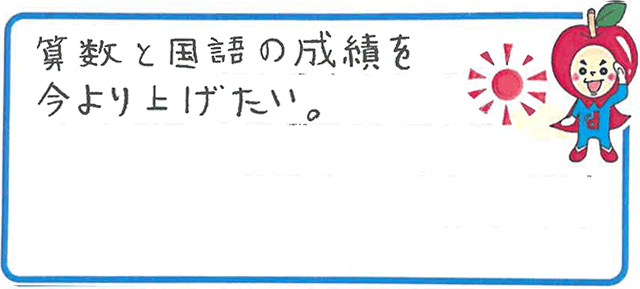 算数と国語の成績を
今より上げたい。